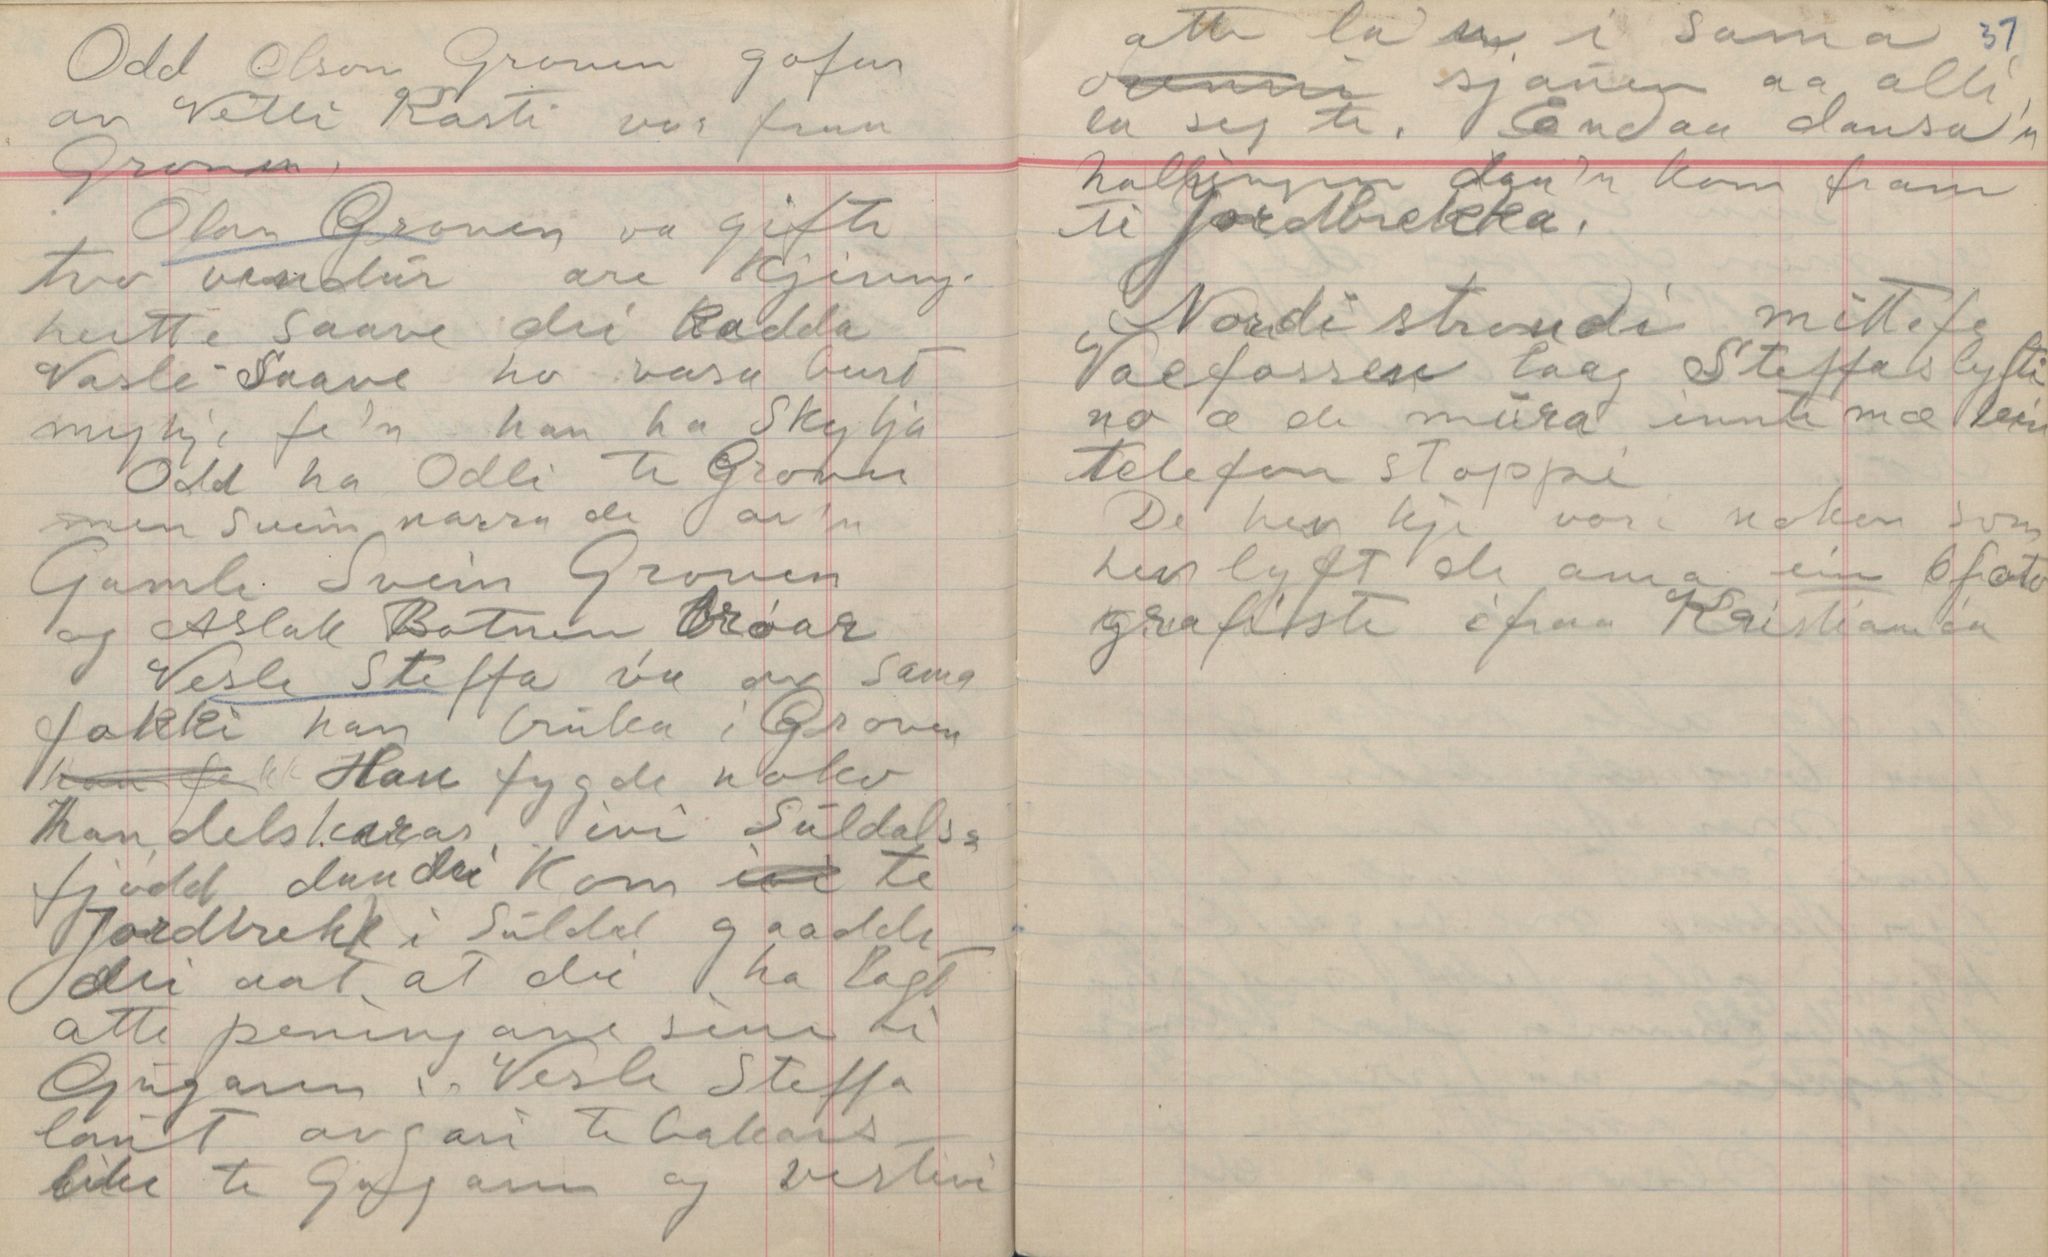 Odd Olson Groven gofar
av Vetli Kasti var fraa
Groven.
Olav Groven va gifte
tvo vendür are Kjering-
heitte Saave dei kadda
Vasle-Saave ho vasa burt
mykje fe'n han ha Skylja
Odd ha Odli te Groven
men Svein narra de av'n
Gamle Svein Groven
og Aslak Botnen brøar
Vesle Steffa va av sama
fokki han brüka i Groven
han fekk Han fygde noko
handelskarar ivi Süldals-
fjødd daa dei kom ivi te
Jordbrekk i Süldal gaadde
dei aat at dei ha lagt
atte peningane sine i
Gjügaren. Vesle Steffa
laut avgari te bakars
like te Gjügaren og vestivi
37
atte la'n i sama
venni sjauen aa alli
la seg te. Endaa dansa'n
hallingen daa'n kom fram
te Jordbrekka.
Nordi strondi mittefe
Vaefossen laag Steffaslyfti
no æ de müra innte mæ ein
telefon stoppi
De hev kje vori noken som
hev lyft de anna ein foto
grafiste ifraa Kristiania